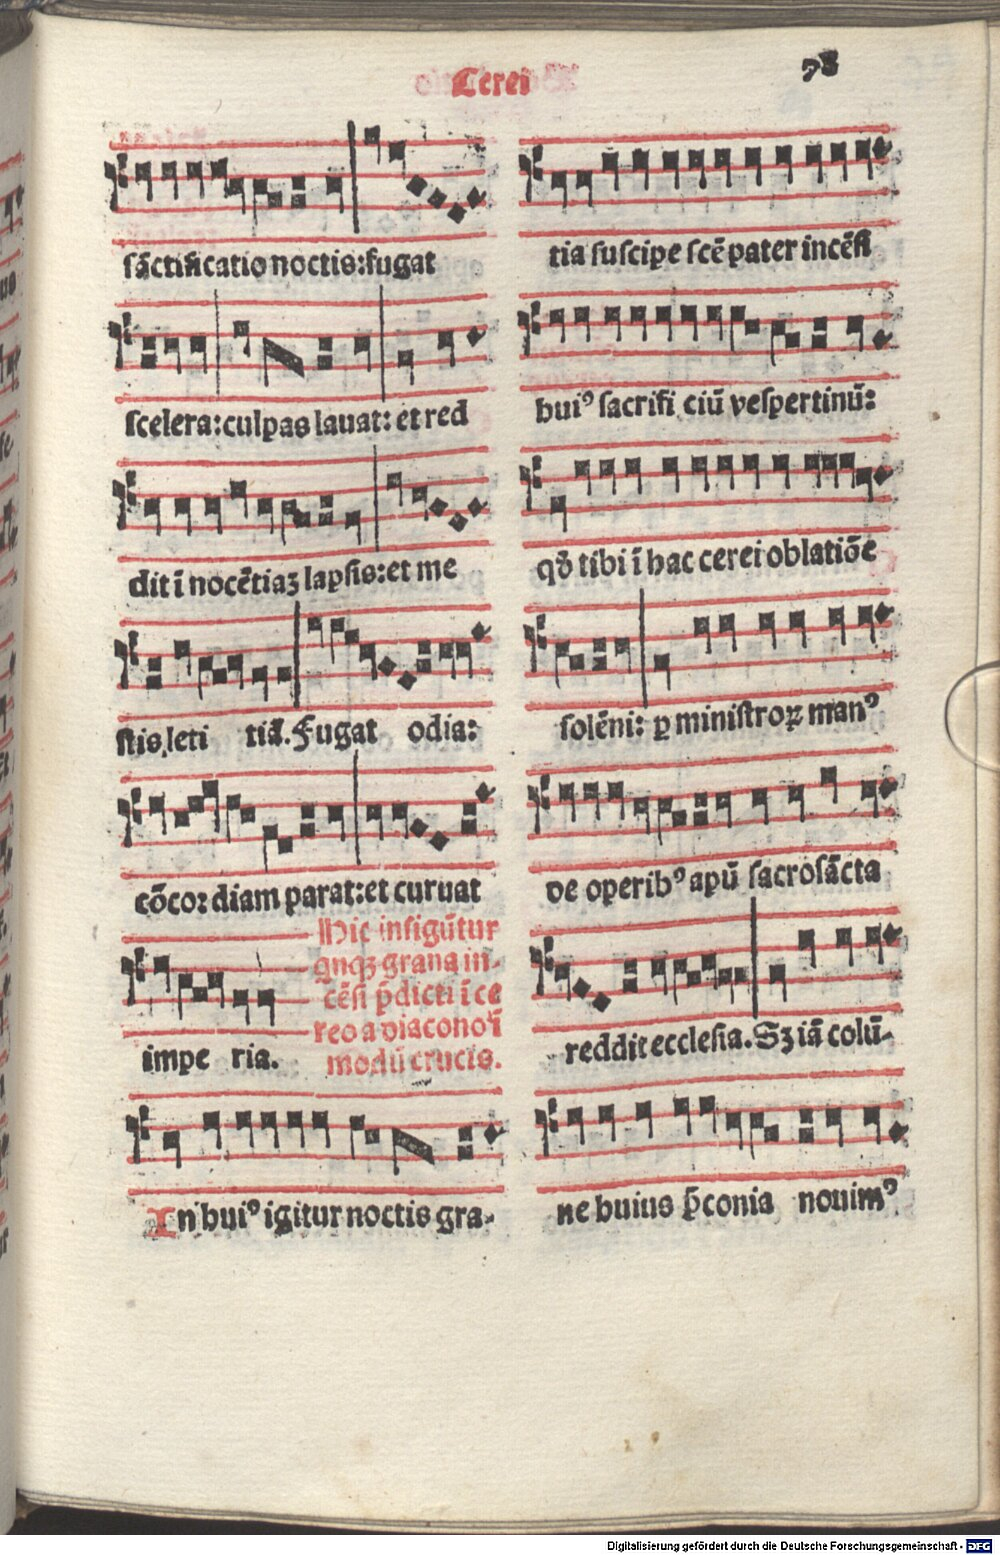 Cerei
78
sāctificatio noctis: fugat
scelera: culpas lauat: et red
dit ī nocētiaꝫ lapsis: et me
stis leti tiā. Fugat odia:
cōcoꝛ diam parat: et curuat
impe ria.
Hic infigūtur
qnqꝫ grana in-
cēsi p̄dicti ī ce
reo a diacono ī
modū crucis.
In huiꝰ igitur noctis gra-
tia suscipe scē pater incēsi
huiꝰ sacrifi ciū vespertinū:
qđ tibi ī hac cerei oblatiōe
solēni: ꝑ ministroꝝ manꝰ
de operibꝰ apū sacrosācta
reddit ecclesia. Sꝫ iā colū-
ne huius p̄conia nouimꝰ
Digitalisierung gefördert durch die Deutsche Forschungsgemeinschaft - DFG